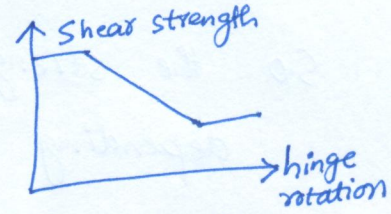 Shear strength
hinge
rotation